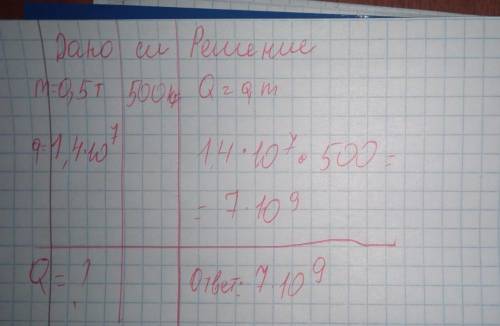 Дано си Решение
m=0,5т 500кг Q=qm
q=1,4·10⁷ 1,4·10⁷·500=
=7·10⁹
Q=? Ответ: 7·10⁹